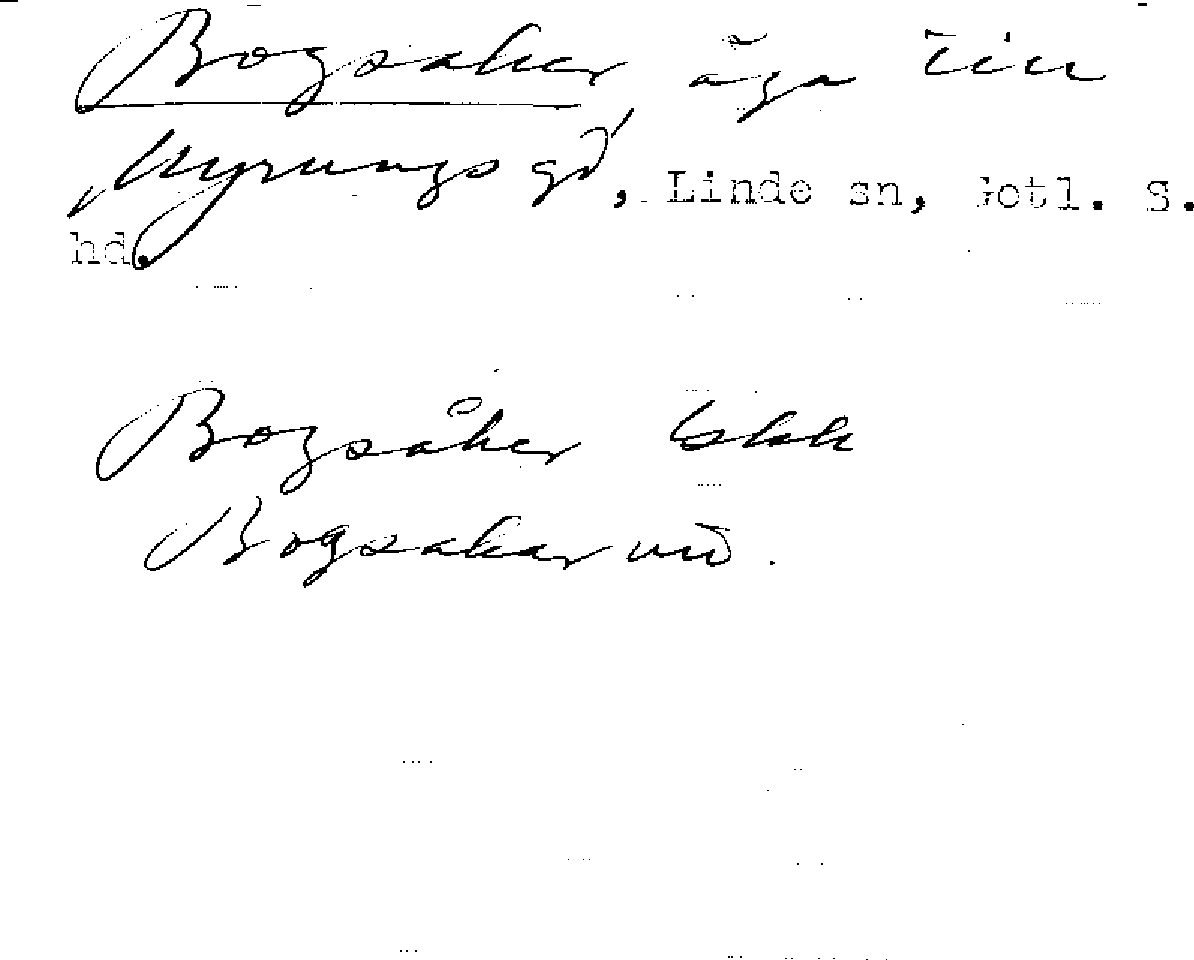 Bogsaker, äga till
Myrungs gd, Linde sn, Gotl. S.
hd.
Bogsåker
Bogsakar